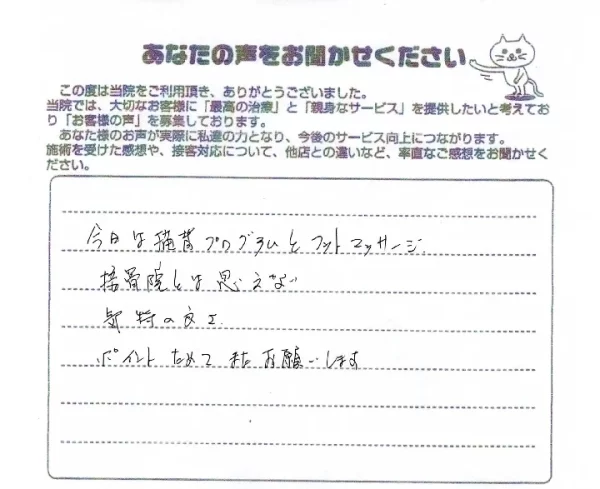 あなたの声をお聞かせください
この度は当院をご利用頂き、ありがとうございました。
当院では、大切なお客様に「最高の治療」と「親身なサービス」を提供したいと考えてお
り「お客様の声」を募集しております。
あなた様のお声が実際に私達の力となり、今後のサービス向上につながります。
施術を受けた感想や、接客対応について、他店との違いなど、率直なご感想をお聞かせく
ださい。
今日は猫背プログラムとフットマッサージ、
接骨院とは思えない
気持の良さ
ポイントためてまたお願いします